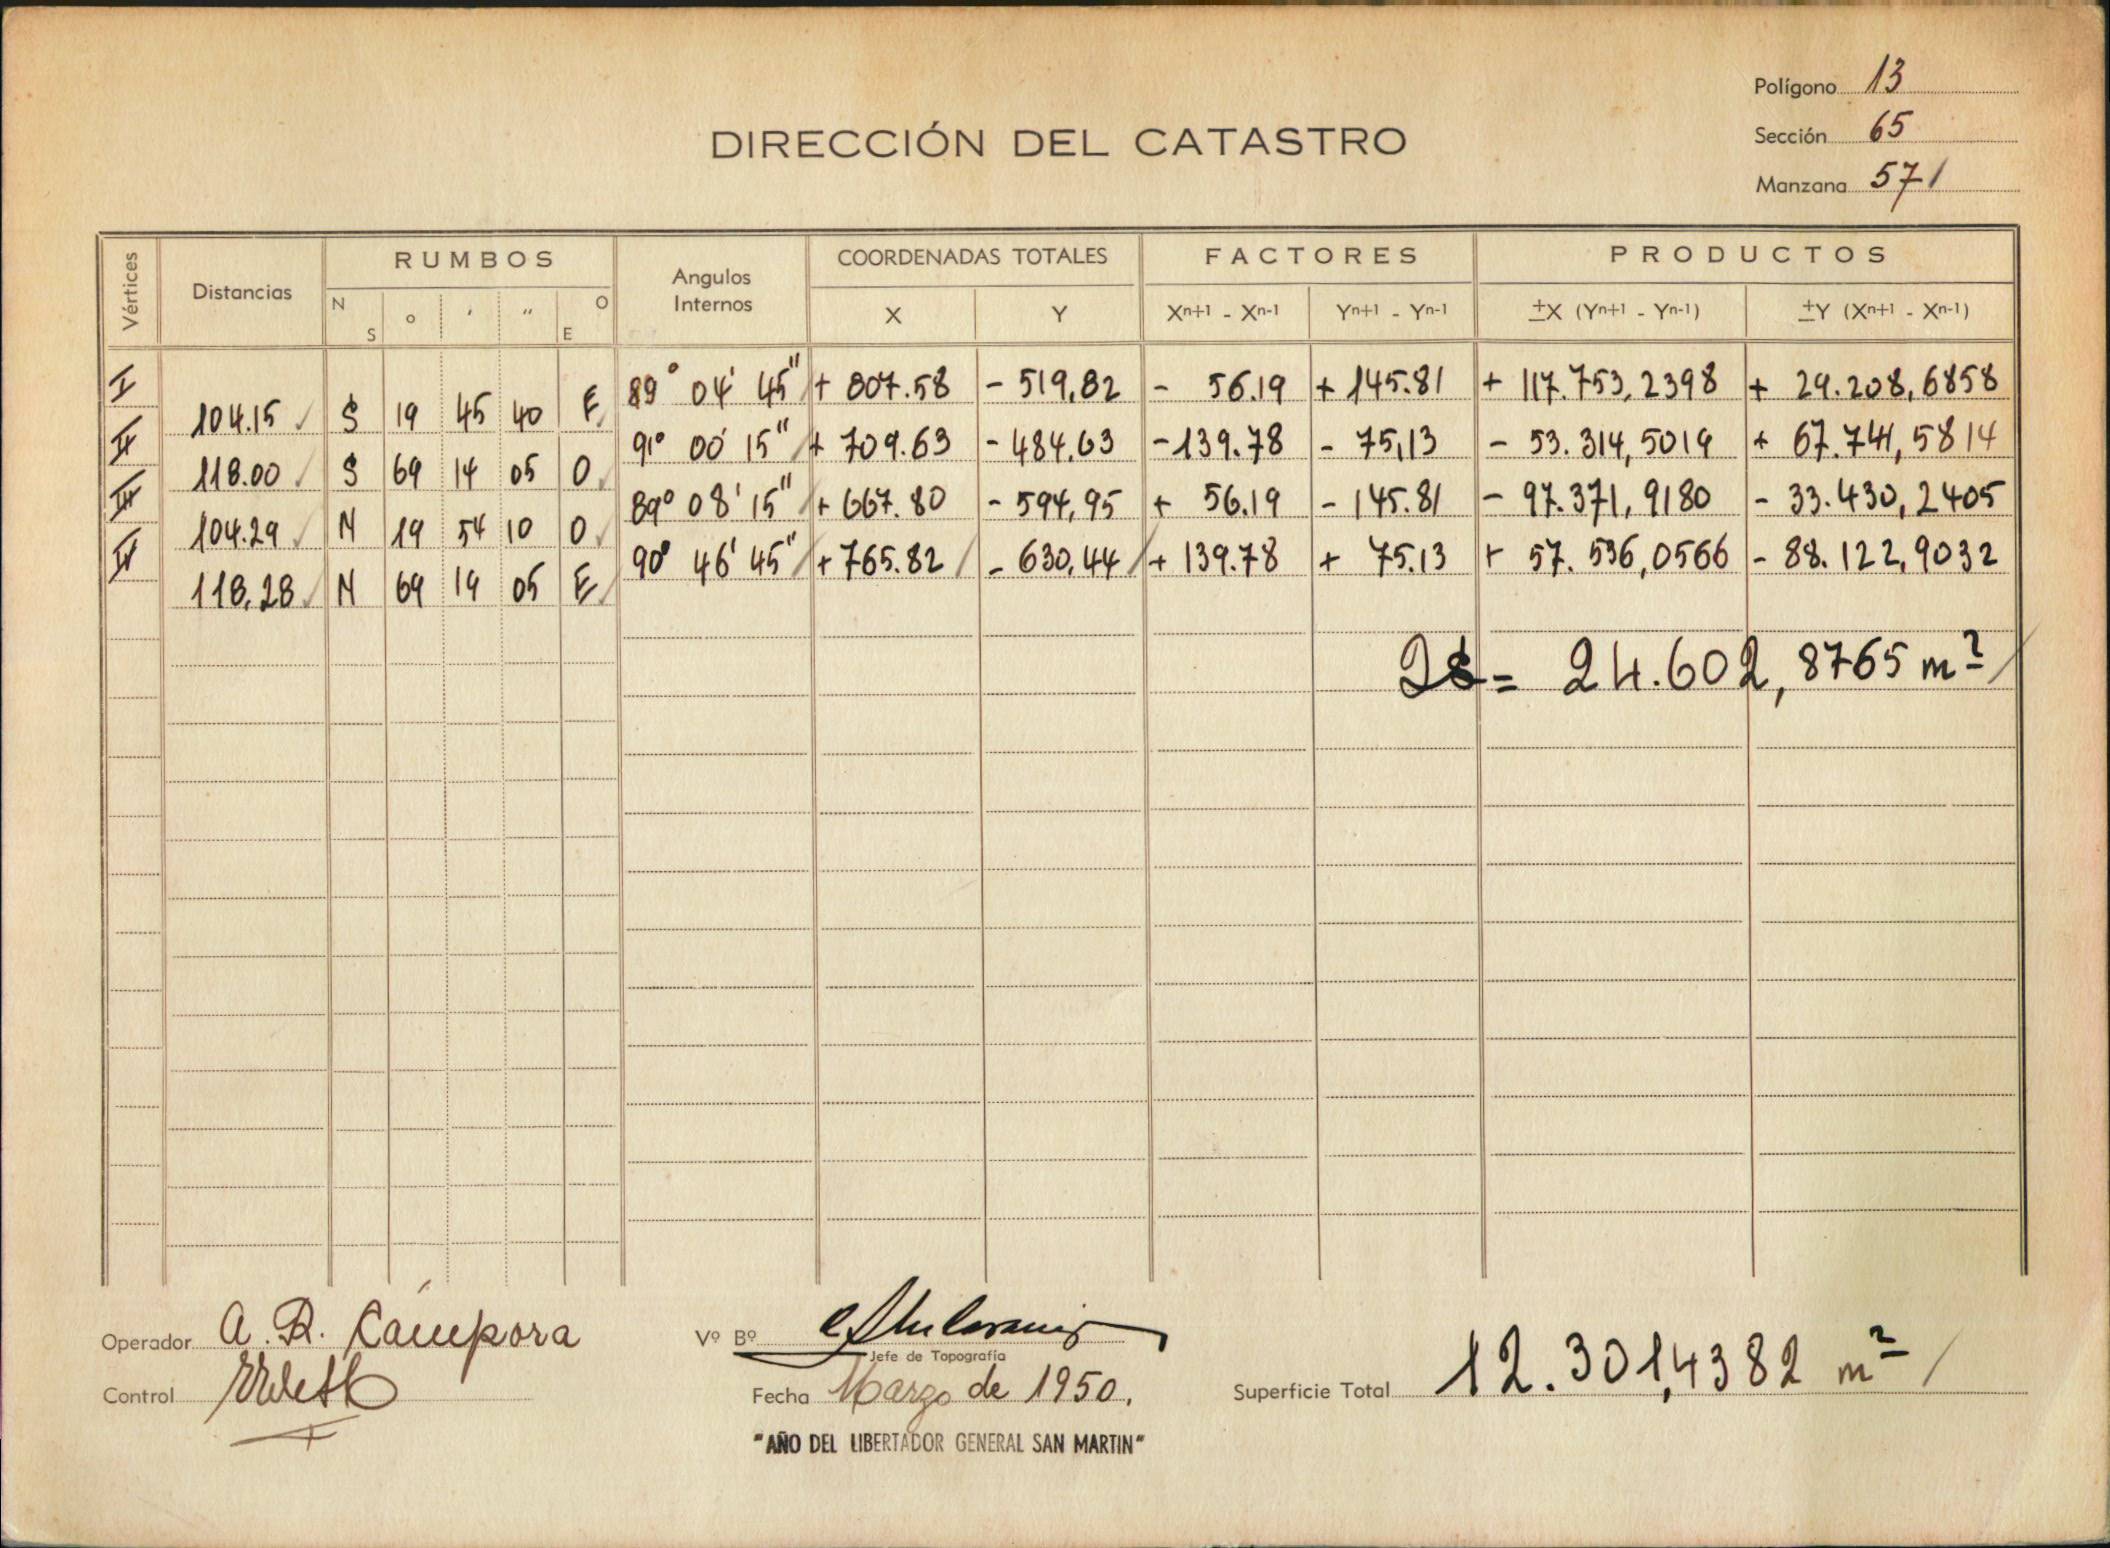 Polígono 13
Sección 65
Manzana 571
DIRECCIÓN DEL CATASTRO
Vértices Distancias RUMBOS Angulos Internos COORDENADAS TOTALES FACTORES PRODUCTOS
N S ° ' " O E X Y Xn+1 - Xn-1 Yn+1 - Yn-1 ±X (Yn+1 - Yn-1) ±Y (Xn+1 - Xn-1)
I 89° 04' 45" + 807.58 - 519,82 - 56.19 + 145.81 + 117.753,2398 + 29.208,6858
104.15 S 19 45 40 E
II 91° 00' 15" + 709.63 - 484.63 - 139.78 - 75,13 - 53.314,5019 + 67.741,5814
118.00 S 69 14 05 O
III 89° 08' 15" + 667.80 - 594,95 + 56.19 - 145.81 - 97.371,9180 - 33.430,2405
104.29 N 19 54 10 O
IV 90° 46' 45" + 765.82 - 630,44 + 139.78 + 75.13 + 57.536,0566 - 88.122,9032
118.28 N 69 19 05 E
2S = 24.602,8765 m²
Operador A. R. Cámpora
Vº Bº
Jefe de Topografía
Control
Fecha Marzo de 1950.
Superficie Total 12.301,4382 m²
"AÑO DEL LIBERTADOR GENERAL SAN MARTIN"